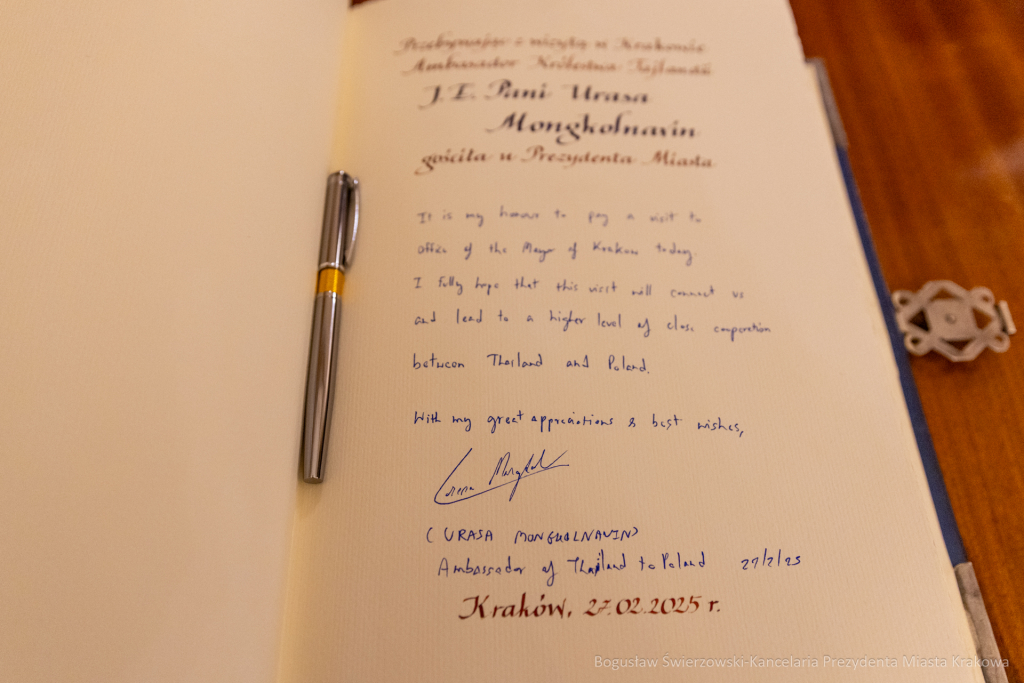 Przebywając z wizytą w Krakowie
Ambasador Królestwa Tajlandii
J.E. Pani Urasa
Mongkolnavin
gościła u Prezydenta Miasta
It is my honour to pay a visit to
office of the Mayor of Krakow today.
I fully hope that this visit will connect us
and lead to a higher level of close cooperation
between Thailand and Poland.
With my great appreciations & best wishes,
(URASA MONGKOLNAVIN)
Ambassador of Thailand to Poland 27/2/25
Kraków, 27.02.2025 r.
Bogusław Świerzowski-Kancelaria Prezydenta Miasta Krakowa